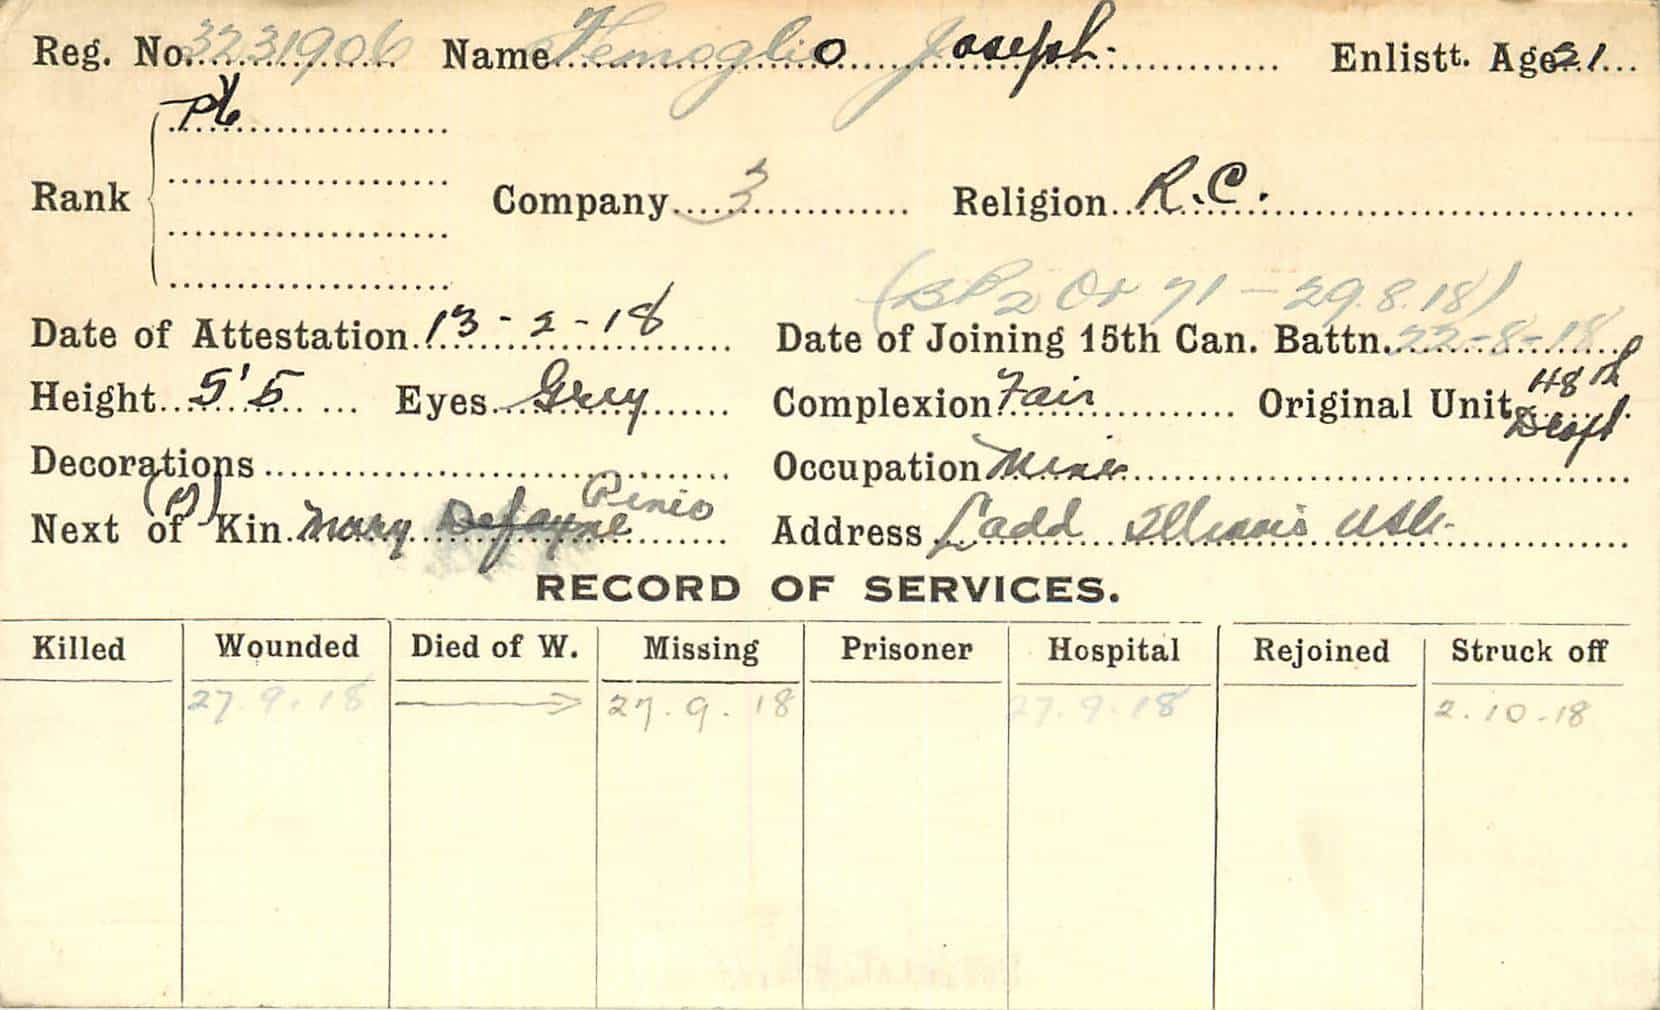 Reg. No. 3231906 Name Joseph. Enlistt. Age 21
Pte
Rank Company 3 Religion R.C.
(BP2 Or 71 - 29.8.18)
Date of Attestation 13-2-18 Date of Joining 15th Can. Battn. 22-8-18
Height 5'5 Eyes Grey Complexion Fair Original Unit 48th Draft
Decorations Occupation Miner
(M)
Next of Kin Mary Defayne Penio Address Ladd Illinois USA.
RECORD OF SERVICES.
Killed Wounded Died of W. Missing Prisoner Hospital Rejoined Struck off
27.9.18 27.9.18 27.9.18 2.10.18